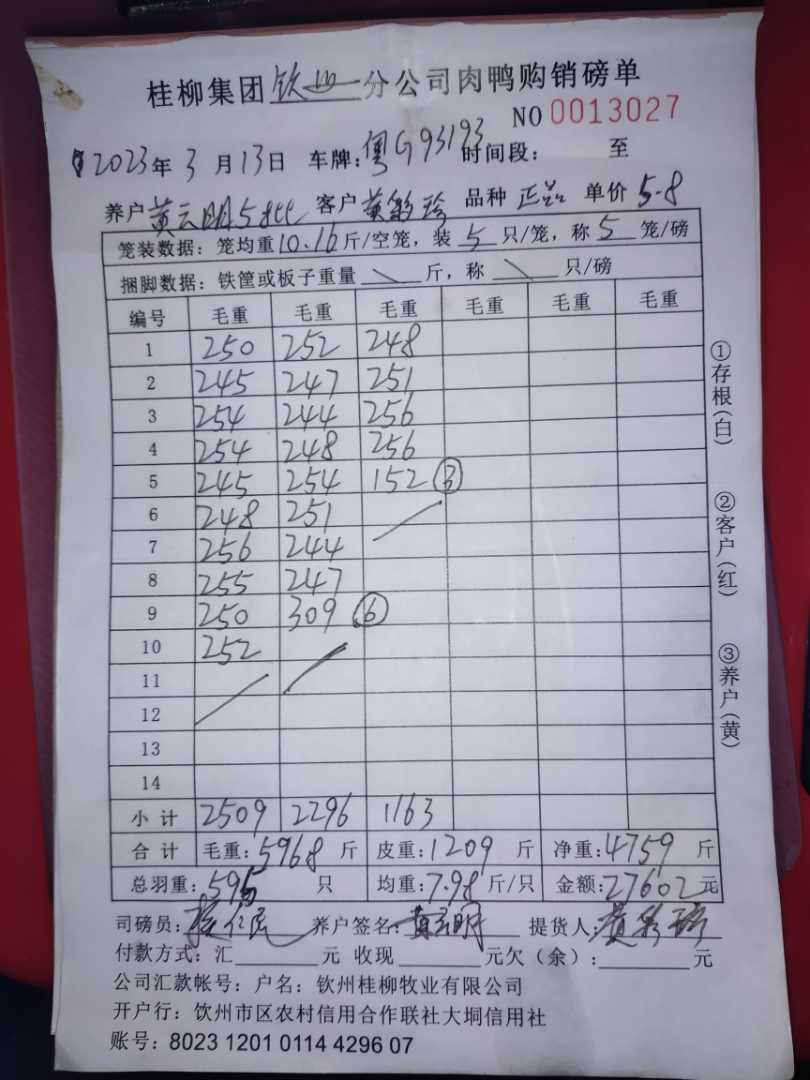 桂柳集团钦州分公司肉鸭购销磅单
NO 0013027
2023年3月13日 车牌:粤G93193 时间段: 至
养户黄云明 客户黄彩珍 品种 正品 单价 5.8
笼装数据: 笼均重10.16斤/空笼，装 5 只/笼，称 5 笼/磅
捆脚数据: 铁筐或板子重量 \ 斤，称 \ 只/磅
编号 毛重 毛重 毛重 毛重 毛重 毛重
1 250 252 248
2 245 247 251
3 254 244 256
4 254 248 256
5 245 254 152 ③
6 248 251
7 256 244
8 255 247
9 250 309 ⑥
10 252
11
12
13
14
小计 2509 2296 1163
合计 毛重:5968 斤 皮重:1209 斤 净重:4759 斤
总羽重: 只 均重:7.98斤/只 金额:27602元
司磅员: 养户签名:黄云明 提货人:黄彩珍
付款方式: 汇 元 收现 元欠（余）: 元
公司汇款帐号: 户名: 钦州桂柳牧业有限公司
开户行: 饮州市区农村信用合作联社大垌信用社
账号: 8023 1201 0114 4296 07
①存根(白)
②客户(红)
③养户(黄)